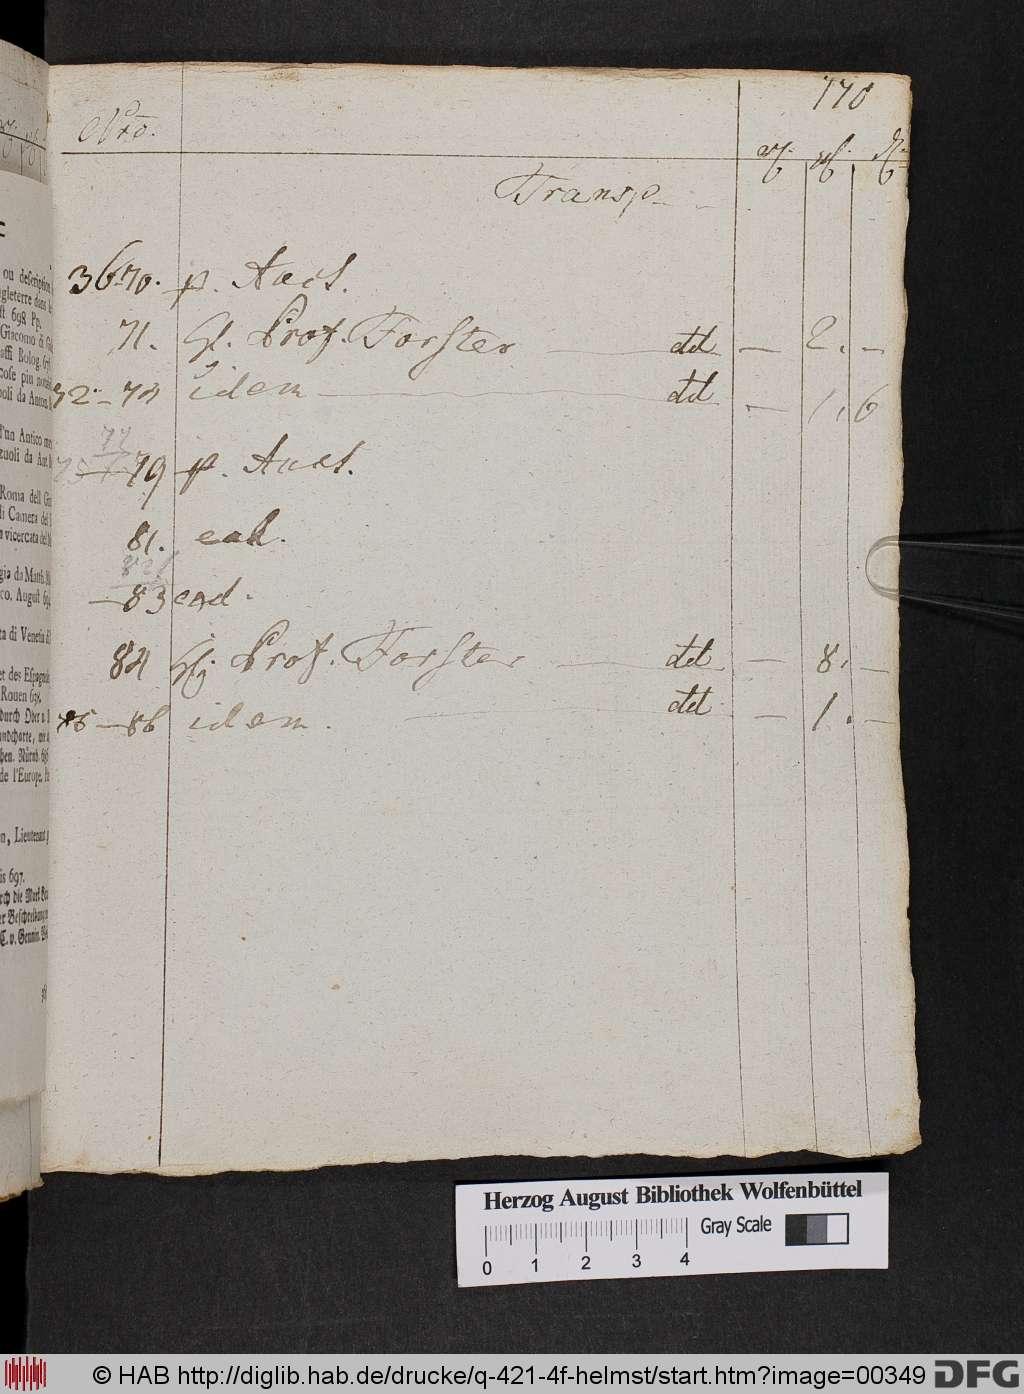 170
Nro.
Transp.
3670. p. Auct.
71. H. Prof. Forster dd — 2. —
72 — 74 idem dd — 1. 6
77
75 — 79 p. Auct.
81. ead.
82
— 83 ead.
84 H. Prof. Forster dd — 8. —
85 — 86 idem. dd — 1. —
ou description
gleterre dans
698 Pp.
Giacomo di
Bolog.
cose piu
poli da Anton.
d'un Antico
zuoli da Ant.
Roma dell
di Camera del
vicercata del
gia da Matth.
co. August
ta di Venetia
et des Espagnols
Rouen
durch Ober
de l'Europe.
n, Lieutenant
is 697.
Herzog August Bibliothek Wolfenbüttel
Gray Scale
0 1 2 3 4
© HAB http://diglib.hab.de/drucke/q-421-4f-helmst/start.htm?image=00349
DFG